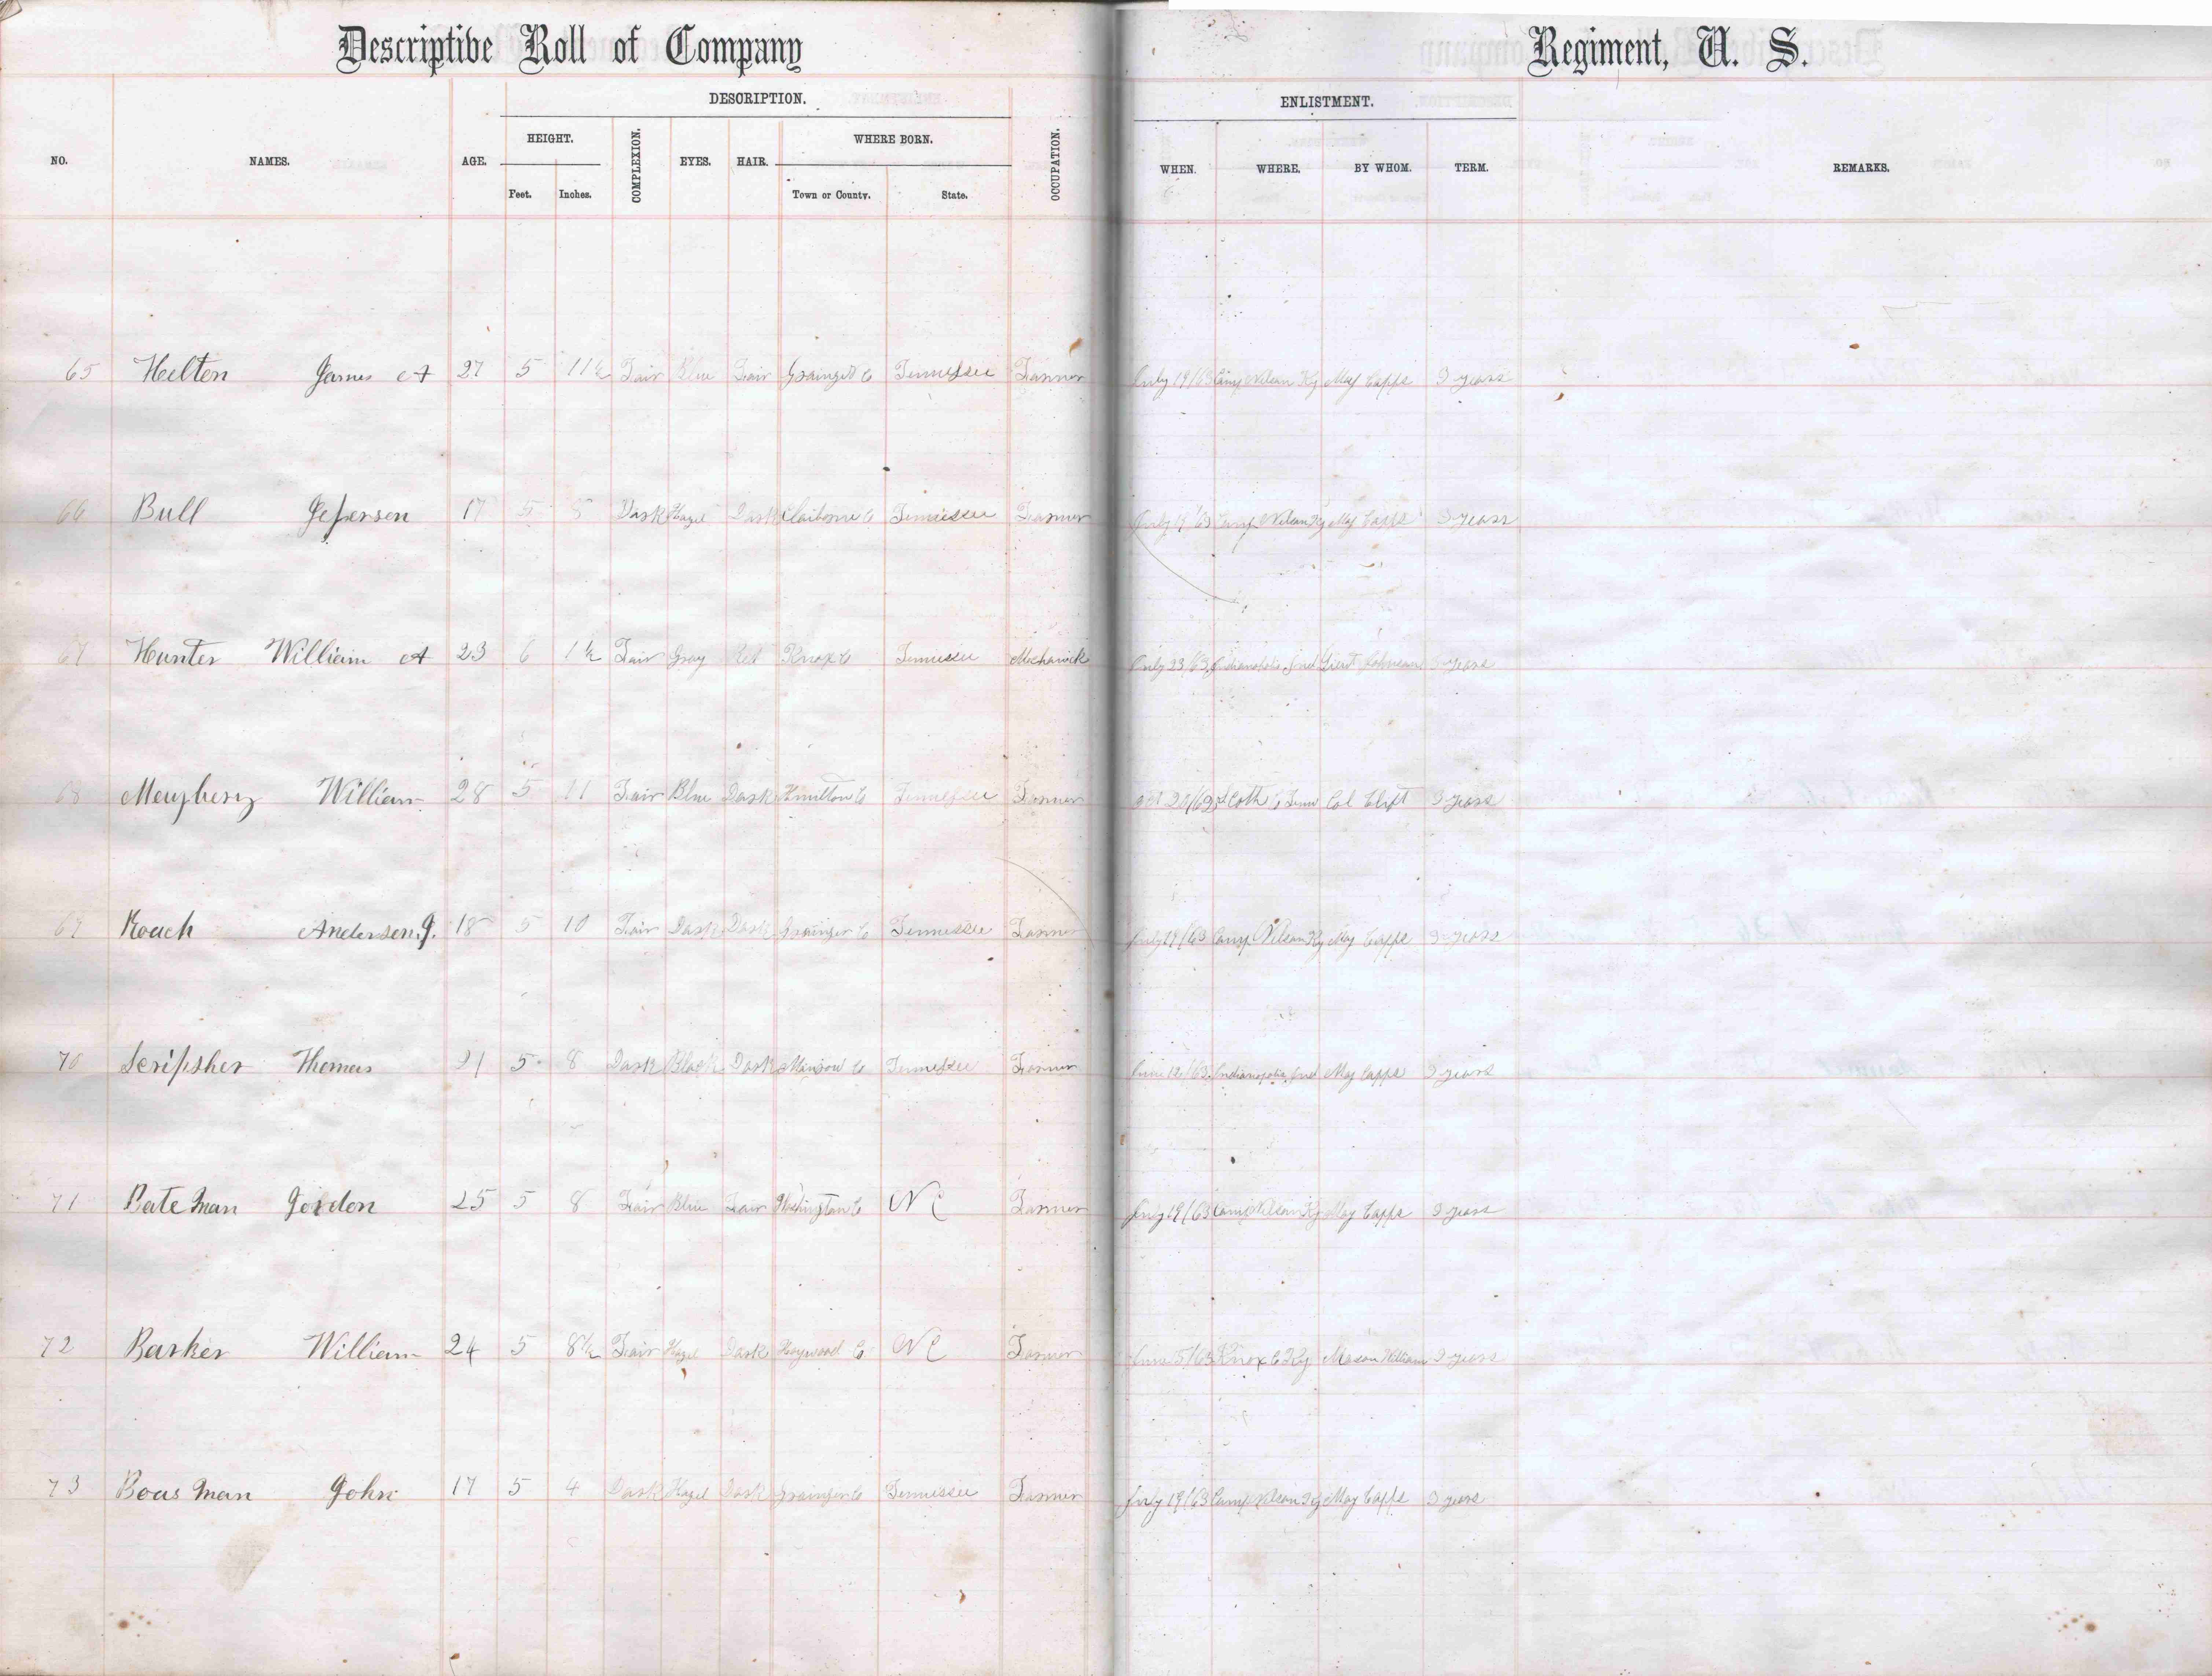 Descriptive Roll of Company Regiment, U. S.
DESCRIPTION. ENLISTMENT.
NO. NAMES. AGE. HEIGHT. COMPLEXION. EYES. HAIR. WHERE BORN. OCCUPATION. WHEN. WHERE. BY WHOM. TERM. REMARKS.
Feet. Inches. Town or County. State.
65 Helton James A 27 5 11½ Fair Blue Fair Tennessee Farmer July 19/63 Camp Nelson Ky Maj Capps 3 years
66 Bull Jefferson 17 5 8 Dark Hazel Dark Claiborne Co Tennessee Farmer July 19/63 Camp Nelson Ky Maj Capps 3 years
67 Hunter William A 23 6 1½ Fair Gray Red Knox Co Tennessee Mechanick July 23/63 Indianapolis Ind Lieut Johnson 3 years
68 William 28 5 11 Fair Blue Dark Hmilton Co Tennessee Farmer Oct 20/62 Scoth Co Tenn Col Clift 3 years
69 Roach Anderson J. 18 5 10 Fair Dark Dark Grainger Co Tennessee Farmer July 19/63 Camp Nelson Ky Maj Capps 3 years
70 Thomas 21 5 8 Dark Black Dark Co Tennessee Farmer June 12/63 Indianapolis Ind Maj Capps 3 years
71 Bate Man 25 5 8 Fair Blue Fair Co NC Farmer July 19/63 Camp Nelson Ky Maj Capps 3 years
72 Barker William 24 5 8½ Fair Hazel Dark Haywood Co NC Farmer June 5/63 Knox Co Ky Mason William 3 years
73 Bous Man John 17 5 4 Dark Hazel Dark Grainger Co Tennessee Farmer July 19/63 Camp Nelson Ky Maj Capps 3 years